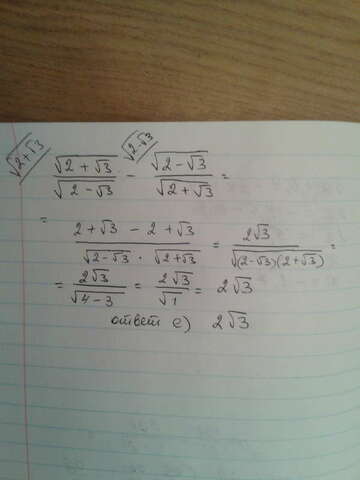 √2+√3 √2-√3
√2+√3/√2-√3 - √2-√3/√2+√3 =
=
2+√3 - 2+√3/√2-√3 · √2+√3 = 2√3/√(2-√3)(2+√3) =
= 2√3/√4-3 = 2√3/√1 = 2√3
ответ е) 2√3